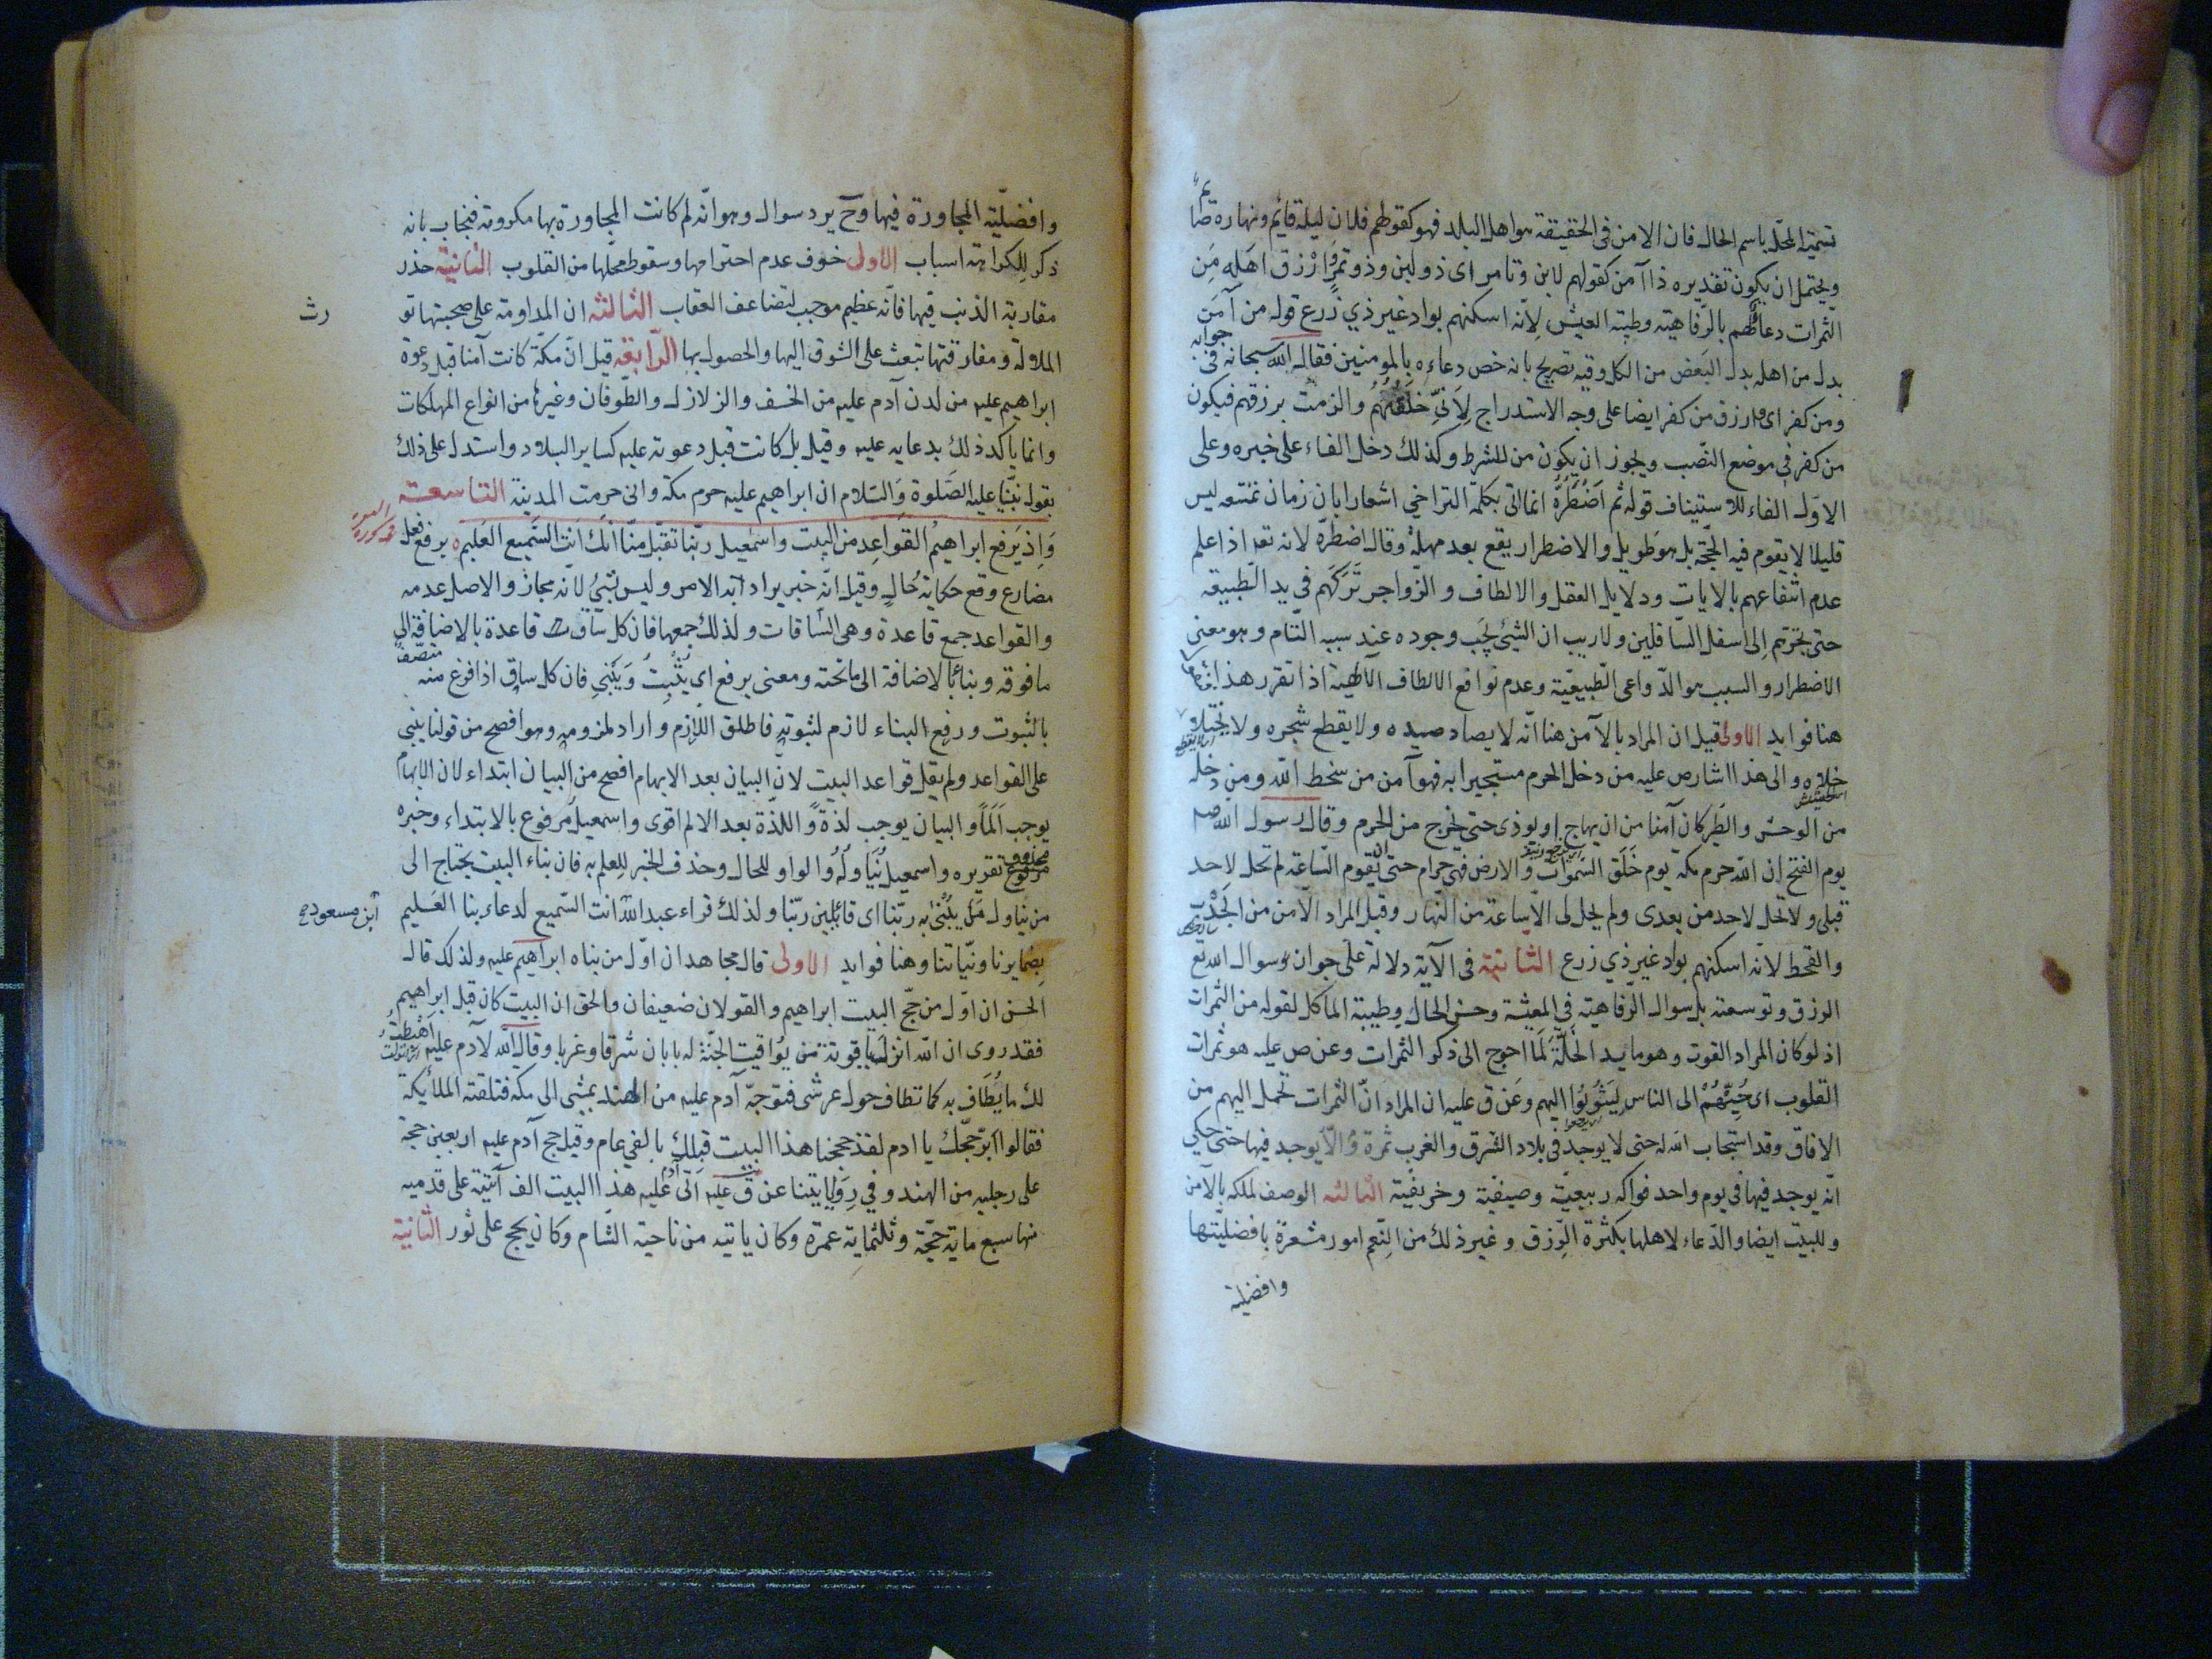 تسمية المحل باسم الحال فان الامن في الحقيقة هو اهل البلد فهو كقولهم فلان ليله قائم ونهاره صائم
ويحتمل ان يكون تقديره ذا آمن كقولهم لابن وتامر اى ذو لبن وذو تمر وَارْزق اهَله مِن
الثمرات دعا لهم بالرّفاهية وطيبة العيش لانّه اسكنهم بواد غير ذي زرع قوله من آمَنَ
بدل من اهله بدل البَعض من الكل وفيه تصريح بانه خص دعاءه بالمومنين فقال الله سبحانه فى جوابه
ومن كفر اى وارزق من كفر ايضا على وجه الاستدراج لِاَنّي خلقتهم والزمت برزقهم فيكون
من كفر في موضع النّصب ويجوز ان يكون من للشرط وكذلك دخل الفاء على خبره وعلى
الاوّل الفاء للاستيناف قوله ثم اَضْطَرُّهُ انما اتى بكلمة التراخي اشعارا بان زمان تمتعه ليس
قليلا لا يقوم فيه الحجّة بل هو طويل والاضطرار يقع بعد مهلة وقال اضطرّه لانه تعه اذا علم
عدم انتفاعهم بالايات ودلايل العقل والالطاف و الزّواجر تَرَكَهم في يد الطّبيعة
حتى تجرّهم اِلى اسفل السّافلين ولا ريب ان الشئ يجب وجوده عند سببه التّام وهو معنى
الاضطرار والسبب هو الدّواعى الطّبيعيّة وعدم توافع الالطاف الالٰهيّة اذا تقرر هذا
هنا فوايد الاولى قيل ان المراد بالآمن هنا انّه لا يصاد صيده ولا يقطع شجره ولا يختلا
خلاه والى هذا اشار ص عليه من دخل الحرم مستجيرا به فهو آمن من سخط الله ومن دخله
من الوحش والطّير كان آمنا من ان يهاج او يوذى حتى يخرج من الحرم وقال رسول الله صم
يوم الفتح ان الله حرم مكه يوم خَلَق السّموات والارض فهى حرام حتى ان تقوم السّاعة لم تحل لاحد
قبلى ولا تحل لاحد من بعدى ولم يحل لى الا ساعة من النّهار وقيل المراد الامن من الجَدْب
والقحط لانه اسكنهم بواد غير ذي زرع الثانية في الآية دلالة على جواز سوال الله تع
الرزق وتوسعته بل سوال الرّفاهية في المعيشة وحسن الحال وطيبة المآكل لقوله من الثمرات
اذ لو كان المراد القوت وهو ما يسد الخَلَّة لَما احوج الى ذكر الثمرات وعن ص عليه هو ثمرات
القلوب اى حُبِّبْهُمْ الى الناس لِيَثُوبُوا اليهم وعَن ق عليه ان المراد انّ الثمرات تحمل اليهم من
الافاق وقد استجاب الله له حتى لا يوجد في بلاد الشرق والغرب ثمرة وُالّا يوجد فيها حتى حكي
انّه يوجد فيها في يوم واحد فواكه ربيعيّة وصيفيّة وخريفيّة الثالثه الوصف لمكه بالامن
وللبيت ايضا والدّعاء لاهلها بكثرة الرّزق وغير ذلك من النِّعم امور مشعرة بافضليّتها
وافضلية
وافضليّة المجاورة فيها وح يرد سوال وهو انّه لم كانت المجاورة بها مكروهة فيجاب بانه
ذكر للكراهة اسباب الاولى خوف عدم احترامها وسقوط محلّها من القلوب الثانية حذر
مقاربة الذنب فيها فانّه عظيم موجب لتضاعف العقاب الثالثه ان المداومة على صحبتها تو
رث
الملالة ومفارقتها تبعث على الشوق اليها والحصول بها الرّابعه قيل انّ مكّة كانت آمنا قبل دعوة
ابراهيم عليه من لدن آدم عليه من الخسف والزلازل والطّوفان وغيرها من انواع المهلكات
وانما ياكد ذلك بدعايه عليه وقيل بل كانت قبل دعوته عليه كساير البلاد واستدل على ذلك
بقول نبيّنا عليه الصّلوة وَالسّلام ان ابراهيم عليه حرم مكه وانى حرمت المدينة التاسعة
وَاِذ يَرفع ابراهيمُ القَواعِد مِن البيت واسمٰعيل ربّنا تقبّل منّا انّكَ انتَ السّميع العَليم ه يرفع فعل
مضارع وقع حكاية حال وقيل انّه خبر يراد به الامر وليس بشئ لانّه مجاز والاصل عدمه
والقواعد جمع قاعدة وهى السّاقات ولذلك جمعها فان كل سّاق قاعدة بالاضافة الى
ما فوقه وبناء بالاضافة الى ما تحته ومعنى يرفع اى يثبت ويَبْني فان كل ساق اذا فرغ منه متصّف
بالثبوت ورفع البناء لازم لثبوته فاطلق اللازم واراد لمزومه وهو افصح من قولنا يبنى
على القواعد ولم يقل قواعد البيت لانّ البيان بعد الابهام افصح من البيان ابتداء لان الابهام
يوجب اَلَمًا والبيان يوجب لذة واللذّة بعد الالم اقوى واسمعيل مرفوع بالابتداء وخبره
محذوف تقديره واسمعيل يُنَاوله والواو للحال وحذف الخبر للعلم به فان بناء البيت يحتاج الى
من يناول مَن يبنى به ربّنا اى قائلين ربّنا ولذلك قراء عبد الله انت السّميع لدعاء بنا العَليم
ابن مسعود
بضمايرنا ونيّاتنا وهنا فوايد الاولى قال مجاهد ان اوّل من بناه ابراهيم عليه ولذلك قال
الحسن ان اوّل من حجّ البيت ابراهيم والقولان ضعيفان والحق ان البيت كان قبل ابراهيم
فقد روى ان الله انزله ياقوتة من يواقيت الجنّة له بابان شرقا وغربا وقال الله لآدم عليه اهبطت
لك ما يُطَاف به كما تطاف حول عرشى فتوجّه آدم عليه من الهند يمشى الى مكه فتلقته الملائكة
فقالوا ابرّ حجّك يا ادم لقد حججنا هذا البيت قبلك بالفي عام وقيل حج آدم عليه اربعين حجة
على رجليه من الهند وفي رِوَايتنا عن ق عليه اتى آدم عليه هذا البيت الف آتية على قدميه
منها سبع ماية حَجّة وثلثماية عمرة وكان ياتيه من ناحية الشام وكان يحج على ثور الثانية